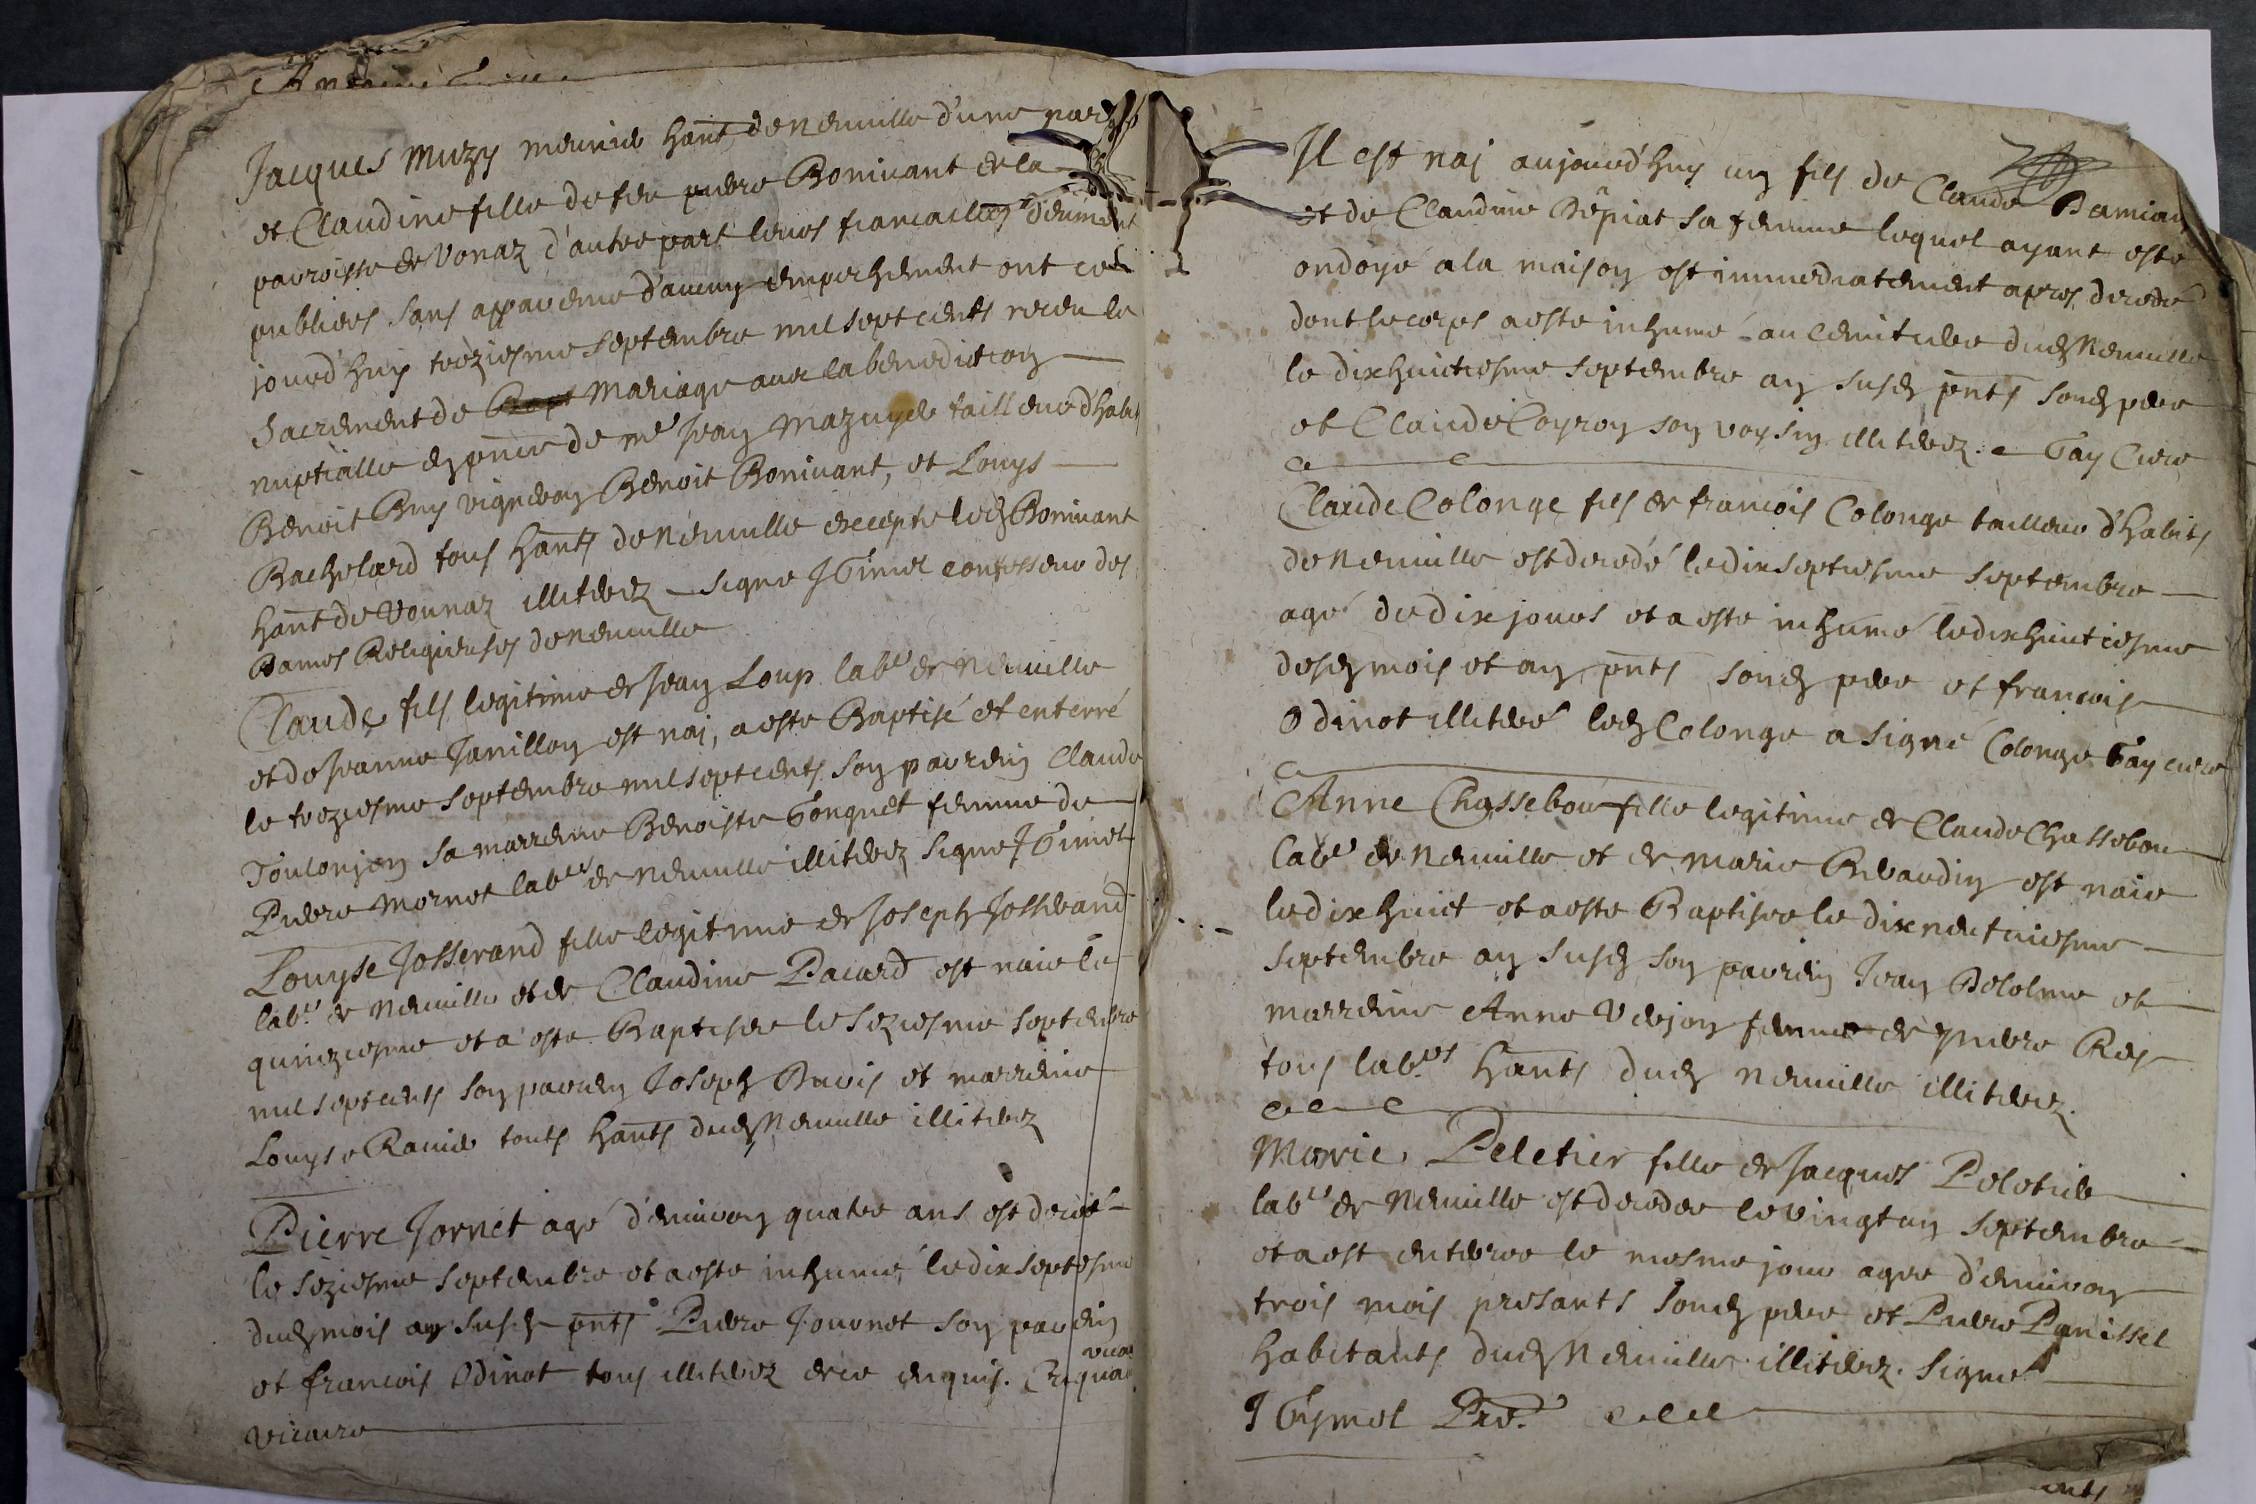 Jacques Muzy meunier hant de neuville d'une part
et Claudine fille de feu pierre Bonivant de la
parroisse de Vonaz d'autre part leurs fiancailles deüment
publiees sans apparence d'aucun empeschement ont ce
jourd'huy treziesme septembre mil sept cents receu le
Sacrement de Mariage avec la benediction
nuptialle en pnce de me Jean Mazuyer tailleur d'habits
Benoit Buy vigneron Benoit Bonivant, et Louys
Bachelard tous hants de neuville excepte led Bonivant
hant de Vonnaz illiterez signe J Gimel confesseur des
Dames Religieuses de neuville
Claude fils legitime de Jean Loup labr de Neuville
et de Jeanne Janillon est nai, a este Baptisé et enterré
le treziesme septembre mil sept cents son parrein Claude
Toulonjon sa marreine Benoiste Gonquet femme de
Pierre Mornet labr de neuville illiterez signe J Gimel
Louyse Josserand fille legitime de Joseph Josserand
labr de neuville et de Claudine Pacard est naie le
quinziesme et a este Baptisee le seziesme septembre
mil sept cents son parrein Joseph Buis et marreine
Louyse Ravier touts hants dud Neuville illiterez
Pierre Jornet agé d'environ quatre ans est decedé
le seziesme septembre et a este inhumé le dixseptiesme
dud mois an susd pnts Pierre Journet son parrein
et francois Odinot tous illiterez de ce enquis.
vicaire
Il est nai aujourd'huy un fils de Claude Damian
et de Claudine Bépiat sa femme lequel ayant este
ondoyé a la maison est immediatement apres decedé
dont le corps a este inhumé au cemitiere dud Neuville
le dixhuictiesme septembre an susd pnts soud pere
et Claude Coyron son voysin illiterez. Gay Cure
Claude Colonge fils de francois Colonge tailleur d'habits
de Neuville est decedé le dixseptiesme septembre
agé de dix jours et a este inhumé le dixhuictiesme
desd mois et an pnts soud pere et francois
Odinot illiteré led Colonge a signé Colonge Gay cure
Anne Chassebou fille legitime de Claude Chassebou
labr de Neuville et de Marie Ribaudin est naie
le dixhuict et a este Baptisee le dixneufviesme
septembre an susd son parrein Jean Delolme et
marreine Anne Verjon femme de pierre Rey
tous labrs hants dud neuville illiterez.
Marie Peletier fille de Jacques Peletier
labr de Neuville est decedee le vingt un septembre
et a est enterree le mesme jour agee d'environ
trois mois presants soud pere et Pierre Panisset
habitants dud Neuville illiterez. Signe
J Gymel Pre.